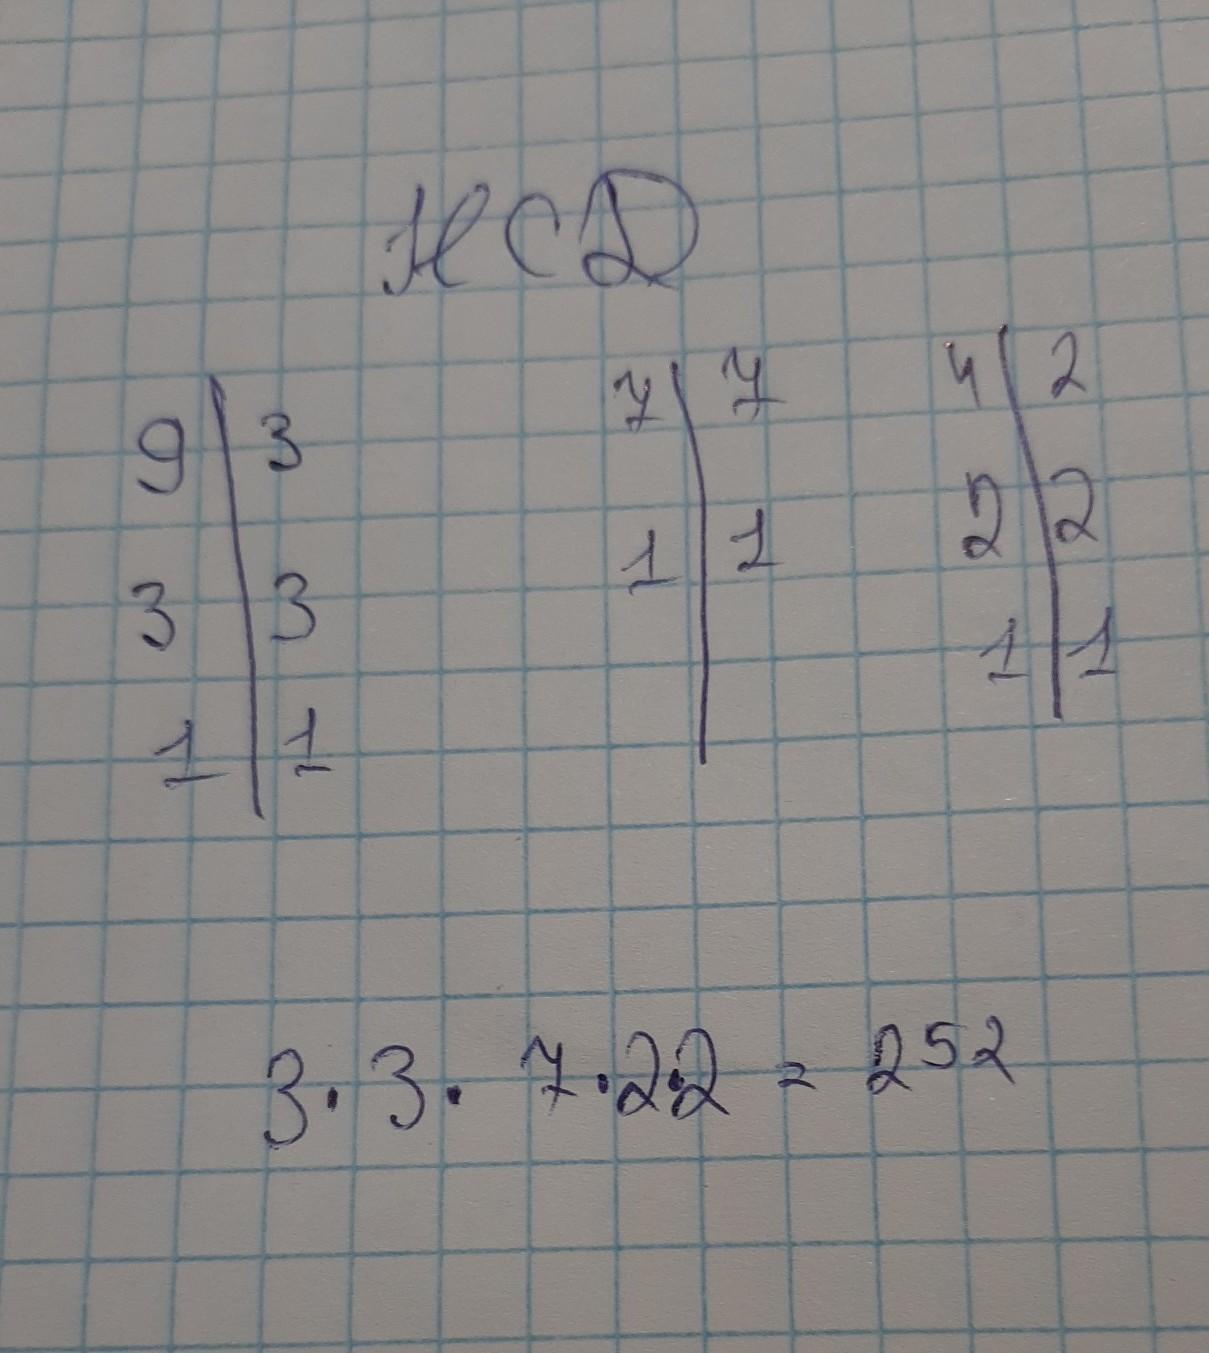 НСД
9 | 3
3 | 3
1 | 1
7 | 7
1 | 1
4 | 2
2 | 2
1 | 1
3 · 3 · 7 · 2 · 2 = 252